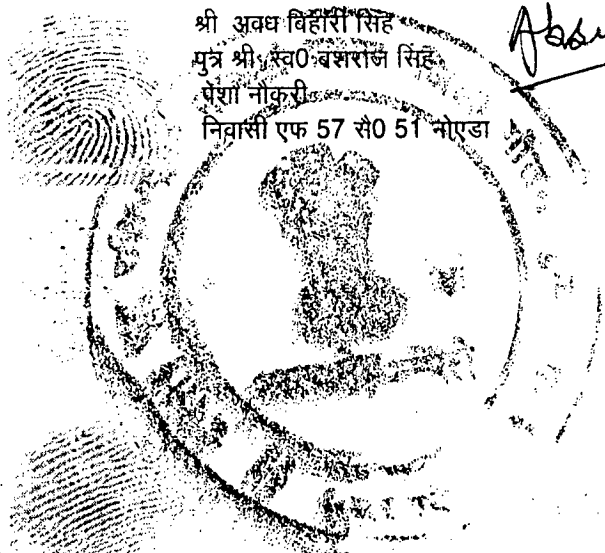 श्री अवध विहारी सिंह
पुत्र श्री स्व0 बशराज सिंह
पेशा नौकरी
निवासी एफ 57 सै0 51 नोएडा